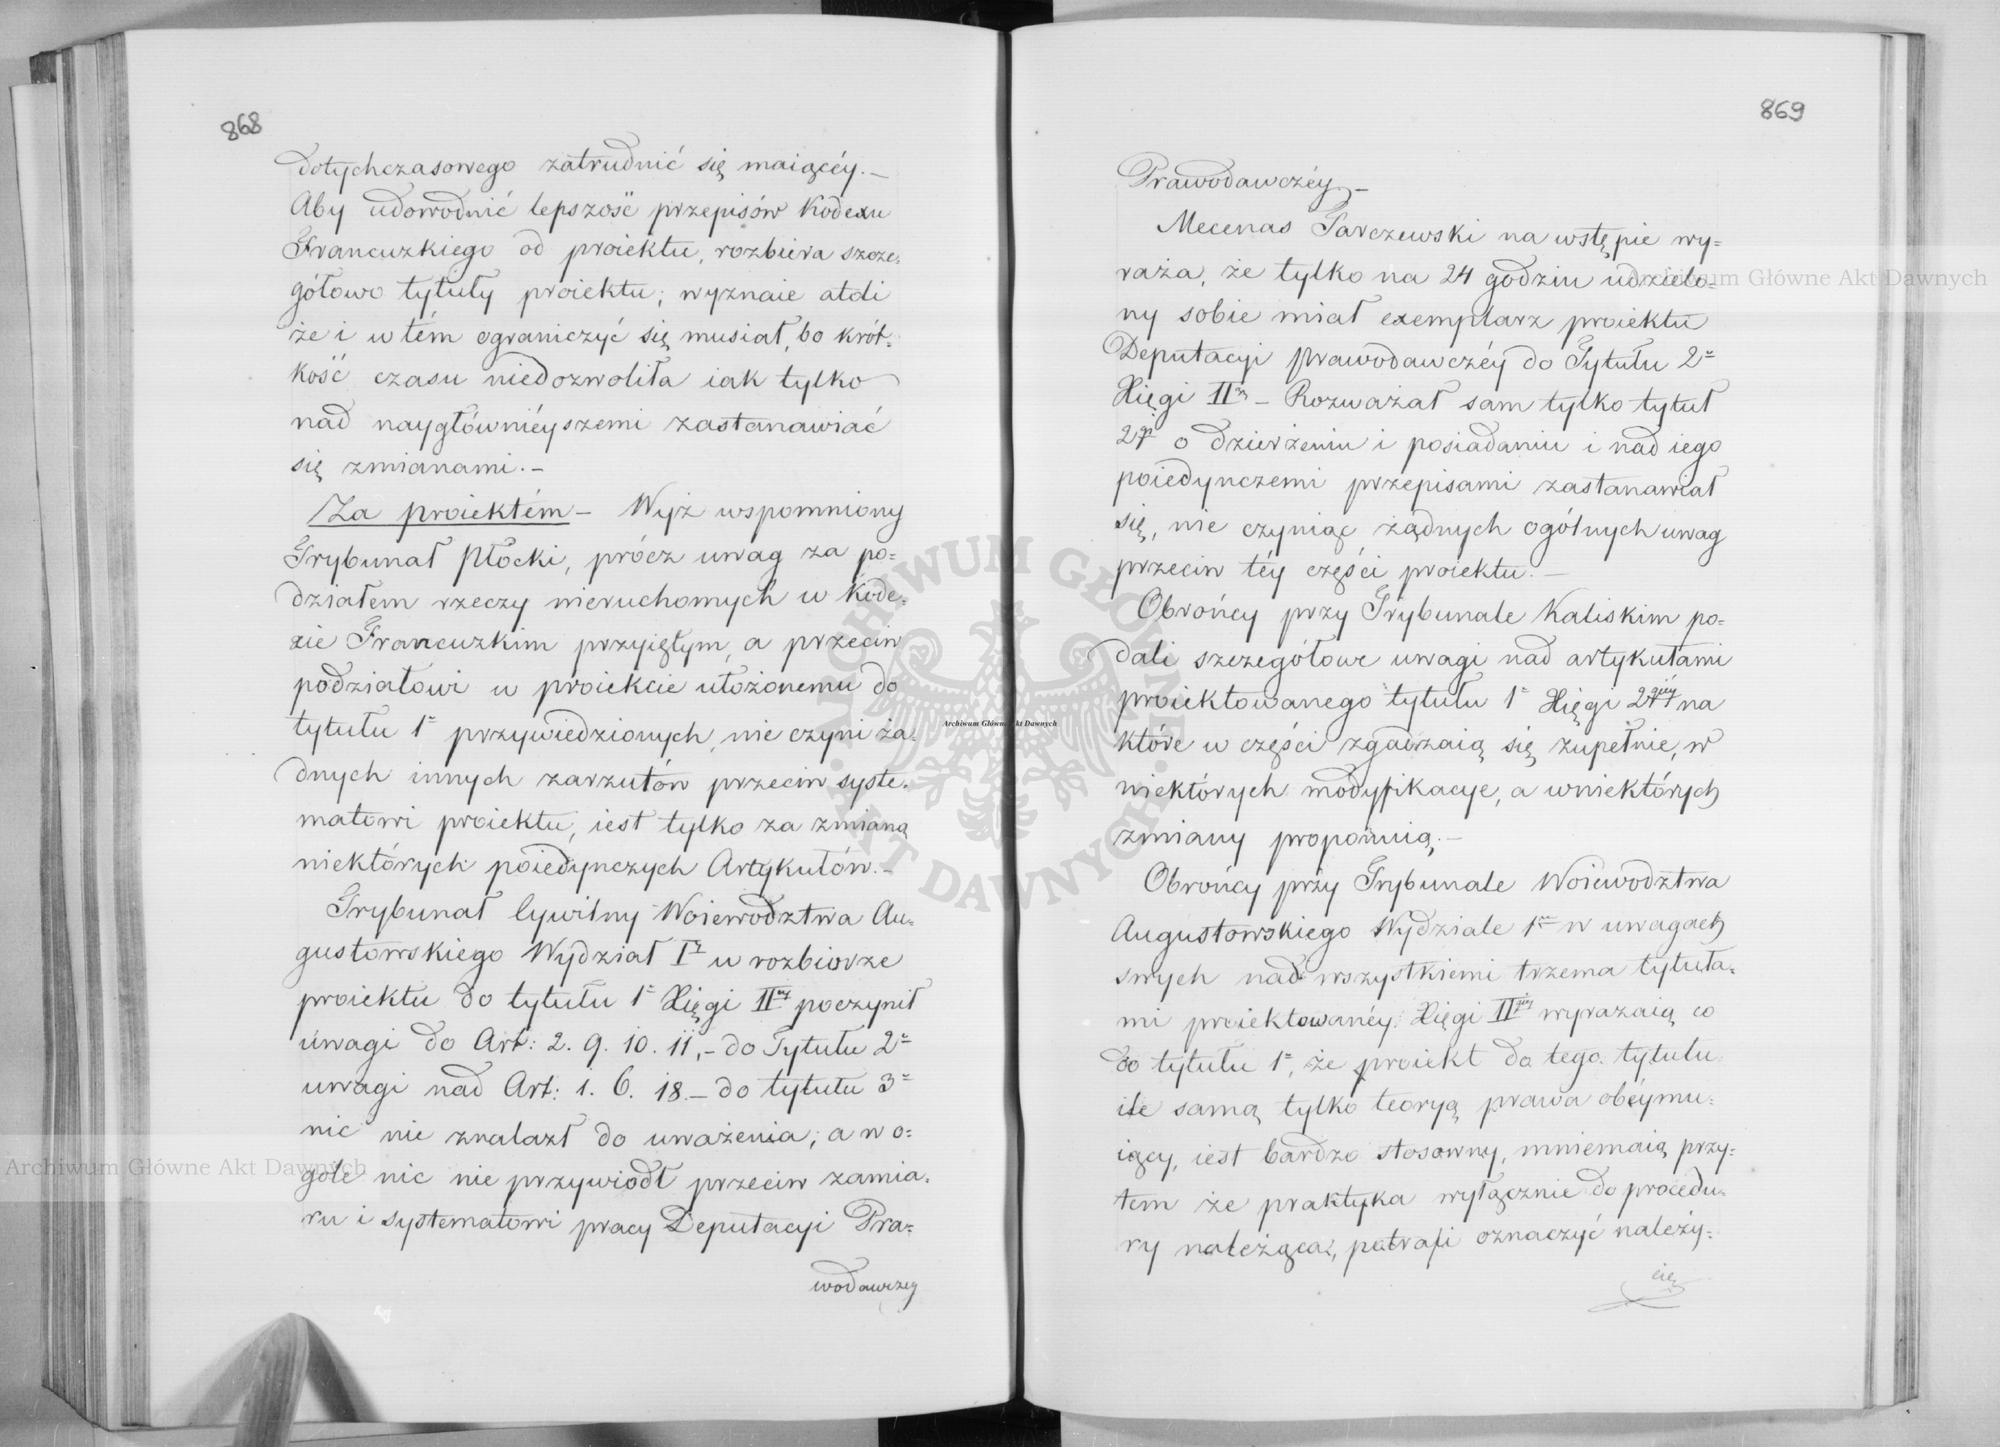 868
dotychczasowego zatrudnić się maiącéy.—
Aby udowodnić lepszość przepisów Kodexu
Francuzkiego od proiektu, rozbiera szcze-
gółowo tytuły proiektu; wyznaie atoli
że i w tém ograniczyć się musiał, bo krót-
kość czasu niedozwoliła iak tylko
nad naygłównieyszemi zastanawiać
się zmianami.—
Za proiektém — Wyż wspomniony
Trybunał Płocki, prócz uwag za po=
działem rzeczy nieruchomych w Kode-
xie Francuzkim przyiętym, a przeciw
podziałowi w proiekcie ułożonemu do
tytułu 1º przywiedzionych, nie czyni ża-
dnych innych zarzutów przeciw syste-
matowi proiektu, iest tylko za zmianą
niektórych poiedynczych Artykułów.—
Trybunał Cywilny Woiewodztwa Au-
gustowskiego Wydział I w rozbiorze
proiektu do tytułu 1º Xięgi II poczynił
uwagi do Art: 2. 9. 10. 11,— do Tytułu 2º
uwagi nad Art: 1. 6. 18.— do tytułu 3º
nic nie znalazł do uważenia; a w o=
gole nic nie przywiodł przeciw zamia-
ru i systematowi pracy Deputacyi Pra=
wodawczey
869
Prawodawczéy —
Mecenas Tarczewski na wstępie wy=
raża, że tylko na 24 godzin udzielo-
ny sobie miał exemplarz proiektu
Deputacyi prawodawczéy do Tytułu 2º
Xięgi II — Rozważał sam tylko tytuł
2gi o dzierżeniu i posiadaniu i nad iego
poiedynczemi przepisami zastanawiał
się, nie czyniąc żądnych ogólnych uwag
przeciw téy części proiektu.—
Obrońcy przy Trybunale Kaliskim po=
dali szczegółowe uwagi nad artykułami
proiektowanego tytułu 1º Xięgi 2giéy na
które w części zgadzaią się zupełnie, w
niektórych modyfikacye, a w niektórych
zmiany proponuią.—
Obrońcy przy Trybunale Woiewodztwa
Augustowskiego Wydziale 1 w uwagach
swych nad wszystkiemi trzema tytuła-
mi proiektowanéy Xięgi II wyrażaią co
do tytułu 1º, że proiekt do tego tytułu
ile samą tylko teoryą prawa obéymu-
iący, iest bardzo stosowny, mniemaią przy-
tem że praktyka wyłącznie do procedu-
ry należąca, potrafi oznaczyć należy-
cie
ARCHIWUM GŁÓWNE AKT DAWNYCH
Archiwum Główne Akt Dawnych
Archiwum Główne Akt Dawnych
Archiwum Główne Akt Dawnych